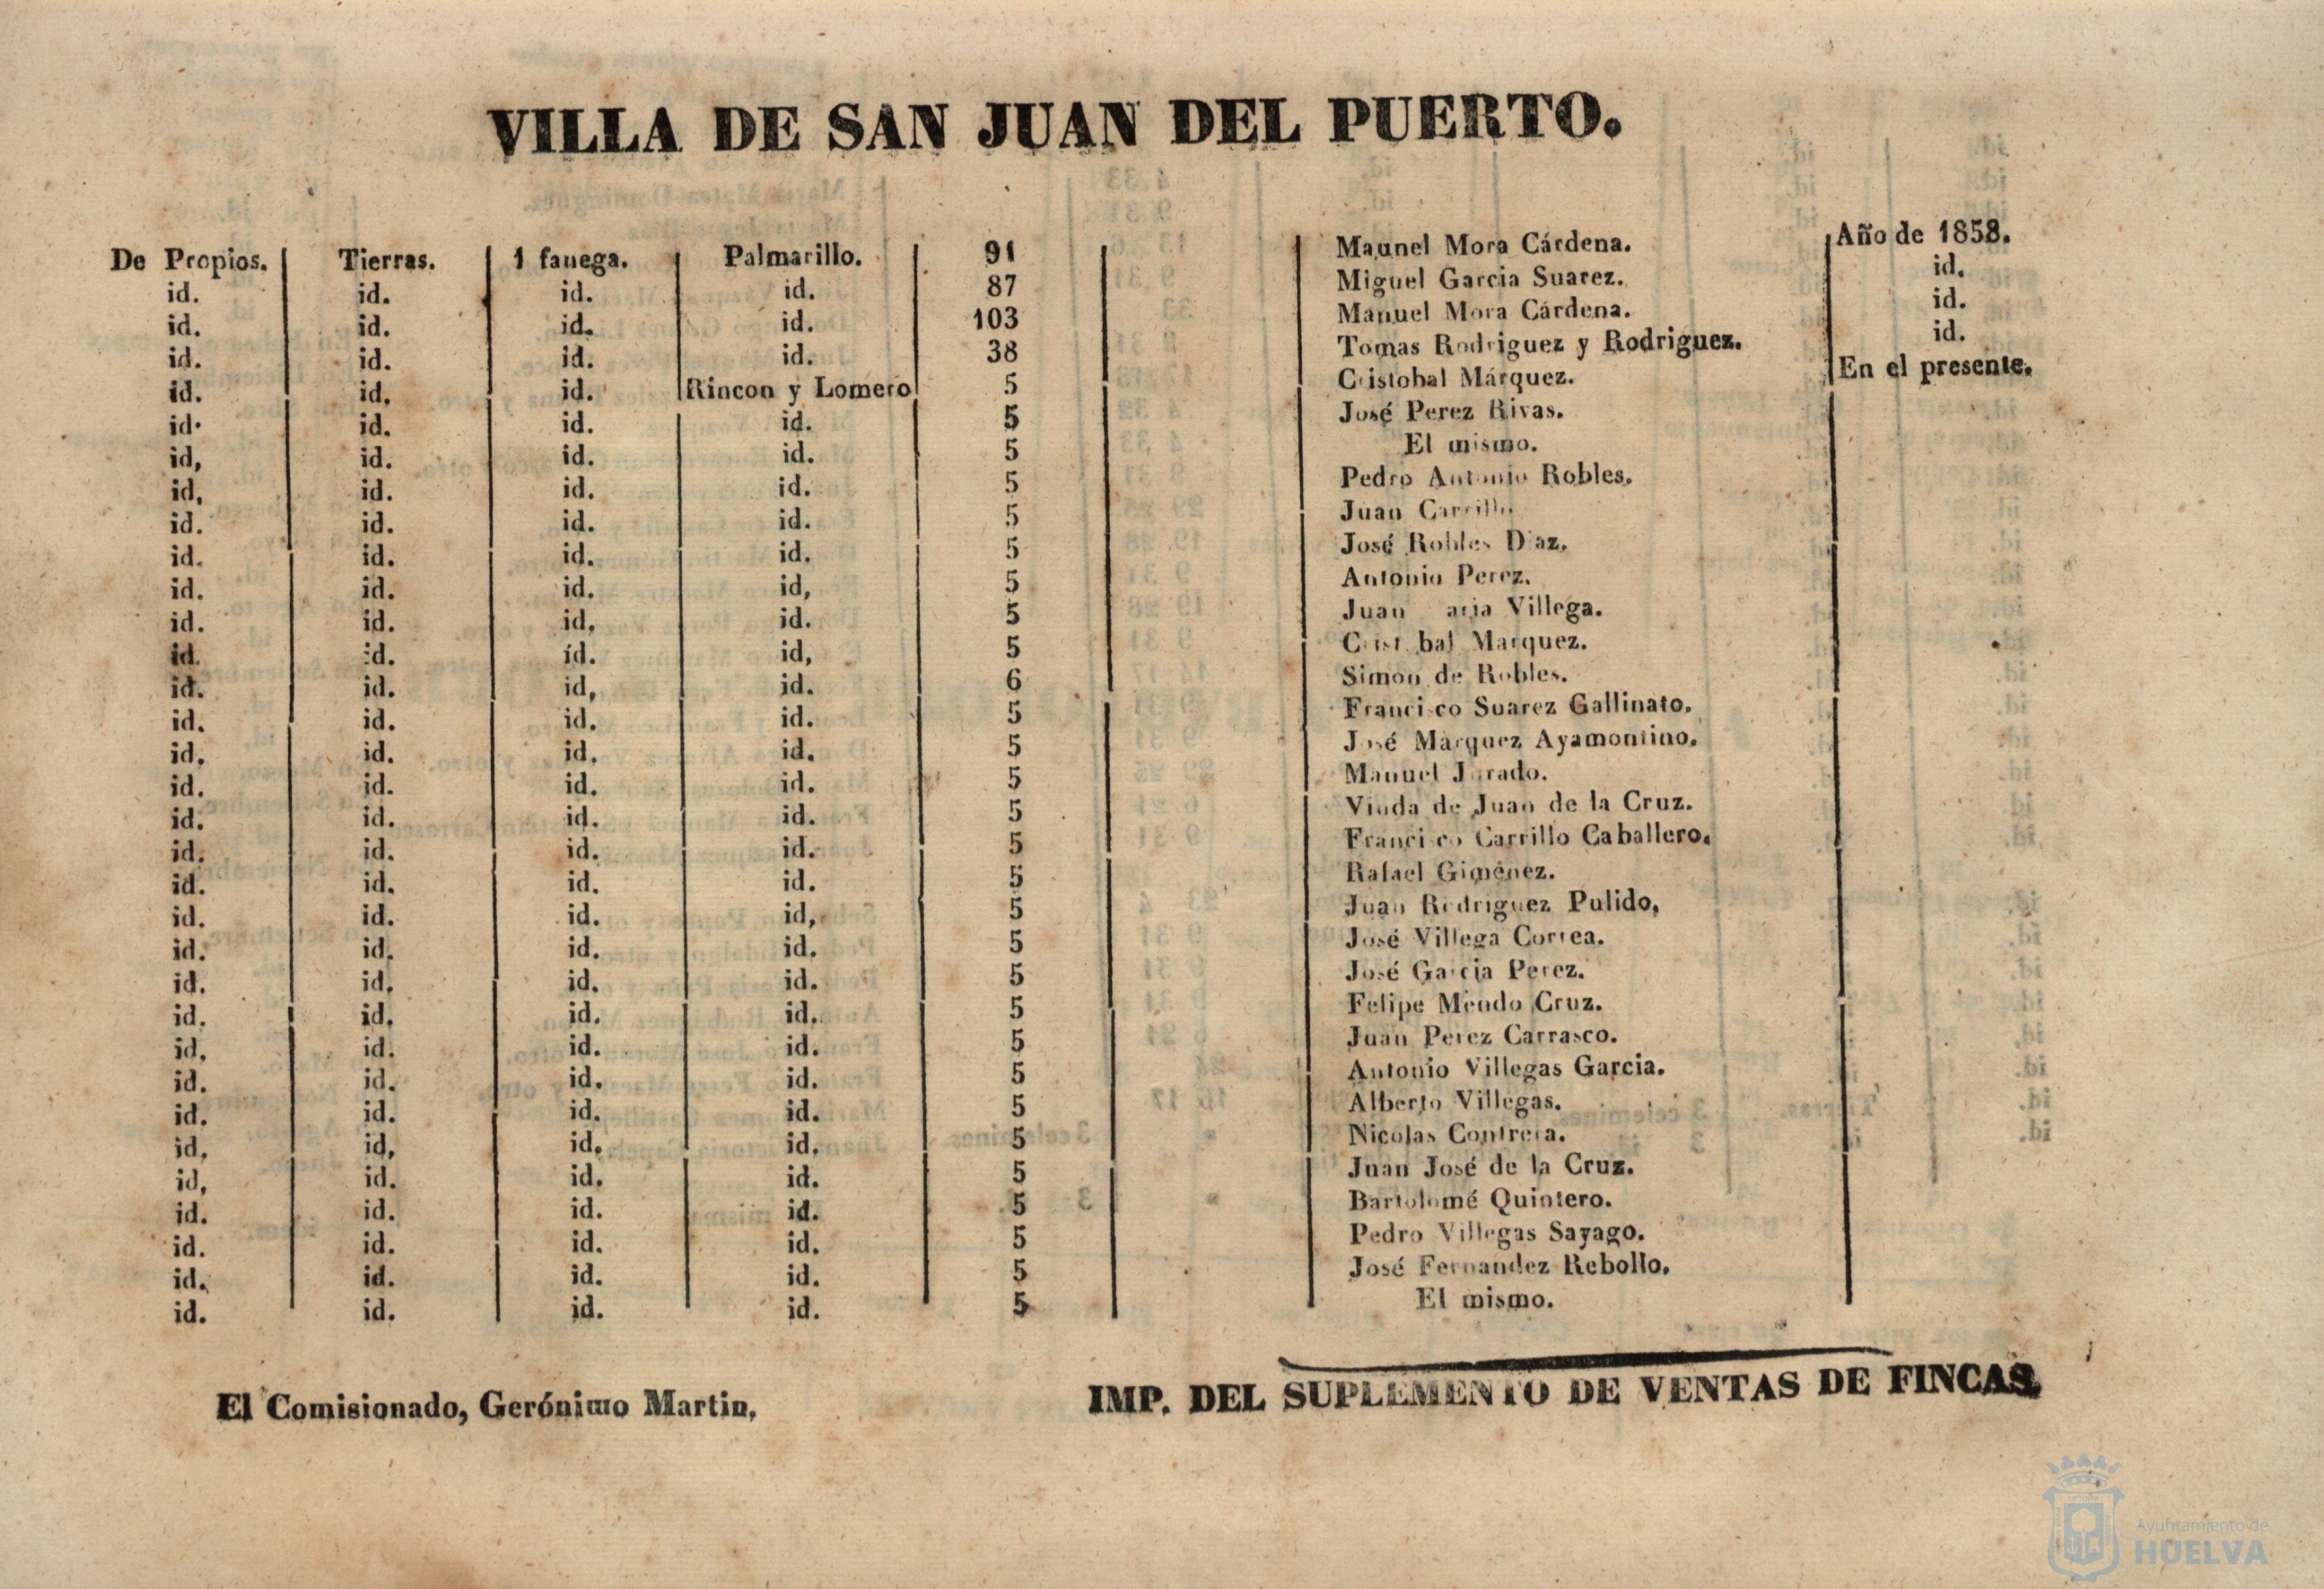 VILLA DE SAN JUAN DEL PUERTO.
De Propios. Tierras. 1 fanega. Palmarillo. 91 Maunel Mora Cárdena. Año de 1858.
id. id. id. id. 87 Miguel Garcia Suarez. id.
id. id. id. id. 103 Manuel Mora Cárdena. id.
id. id. id. id. 38 Tomas Rodriguez y Rodriguez. id.
id. id, id. Rincon y Lomero 5 Cristobal Márquez. En el presente.
id. id. id. id. 5 José Perez Rivas.
id, id. id. id. 5 El mismo.
id, id. id. id. 5 Pedro Antonio Robles.
id. id. id. id. 5 Juan Carrillo
id. id. id. id. 5 José Robles Diaz.
id. id. id. id, 5 Antonio Perez.
id. id. id, id. 5 Juan aria Villega.
id. id. id. id, 5 Crist bal Marquez.
id. id. id, id. 6 Simon de Robles.
id. id. id. id. 5 Francisco Suarez Gallinato.
id, id. id, id. 5 José Marquez Ayamontino.
id. id. id. id. 5 Manuel Jurado.
id. id. id. id. 5 Viuda de Juan de la Cruz.
id. id. id. id. 5 Francisco Carrillo Caballero.
id. id. id. id. 5 Rafael Gimenez.
id. id. id. id, 5 Juan Rodriguez Pulido,
id. id. id. id. 5 José Villega Correa.
id. id, id. id. 5 José Garcia Perez.
id. id, id. id. 5 Felipe Mendo Cruz.
id, id. id. id. 5 Juan Perez Carrasco.
id. id. id. id. 5 Antonio Villegas Garcia.
id. id. id. id. 5 Alberto Villegas.
id, id, id, id, 5 Nicolas Contrera.
id, id. id. id. 5 Juan José de la Cruz.
id. id. id. id. 5 Bartolomé Quintero.
id. id. id. id. 5 Pedro Villegas Sayago.
id. id. id. id. 5 José Fernandez Rebollo.
id. id. id. id. 5 El mismo.
El Comisionado, Gerónimo Martin,
IMP. DEL SUPLEMENTO DE VENTAS DE FINCAS.
Ayuntamiento de
HUELVA